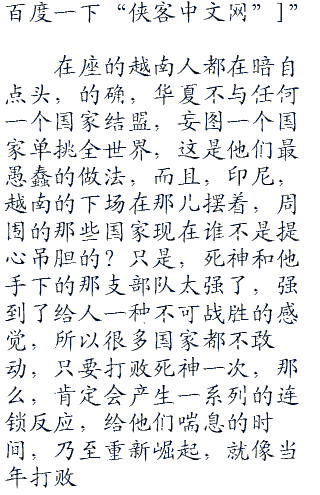 百度一下“侠客中文网”]”
在座的越南人都在暗自
点头，的确，华夏不与任何
一个国家结盟，妄图一个国
家单挑全世界，这是他们最
愚蠢的做法，而且，印尼，
越南的下场在那儿摆着，周
围的那些国家现在谁不是提
心吊胆的？只是，死神和他
手下的那支部队太强了，强
到了给人一种不可战胜的感
觉，所以很多国家都不敢
动，只要打败死神一次，那
么，肯定会产生一系列的连
锁反应，给他们喘息的时
间，乃至重新崛起，就像当
年打败